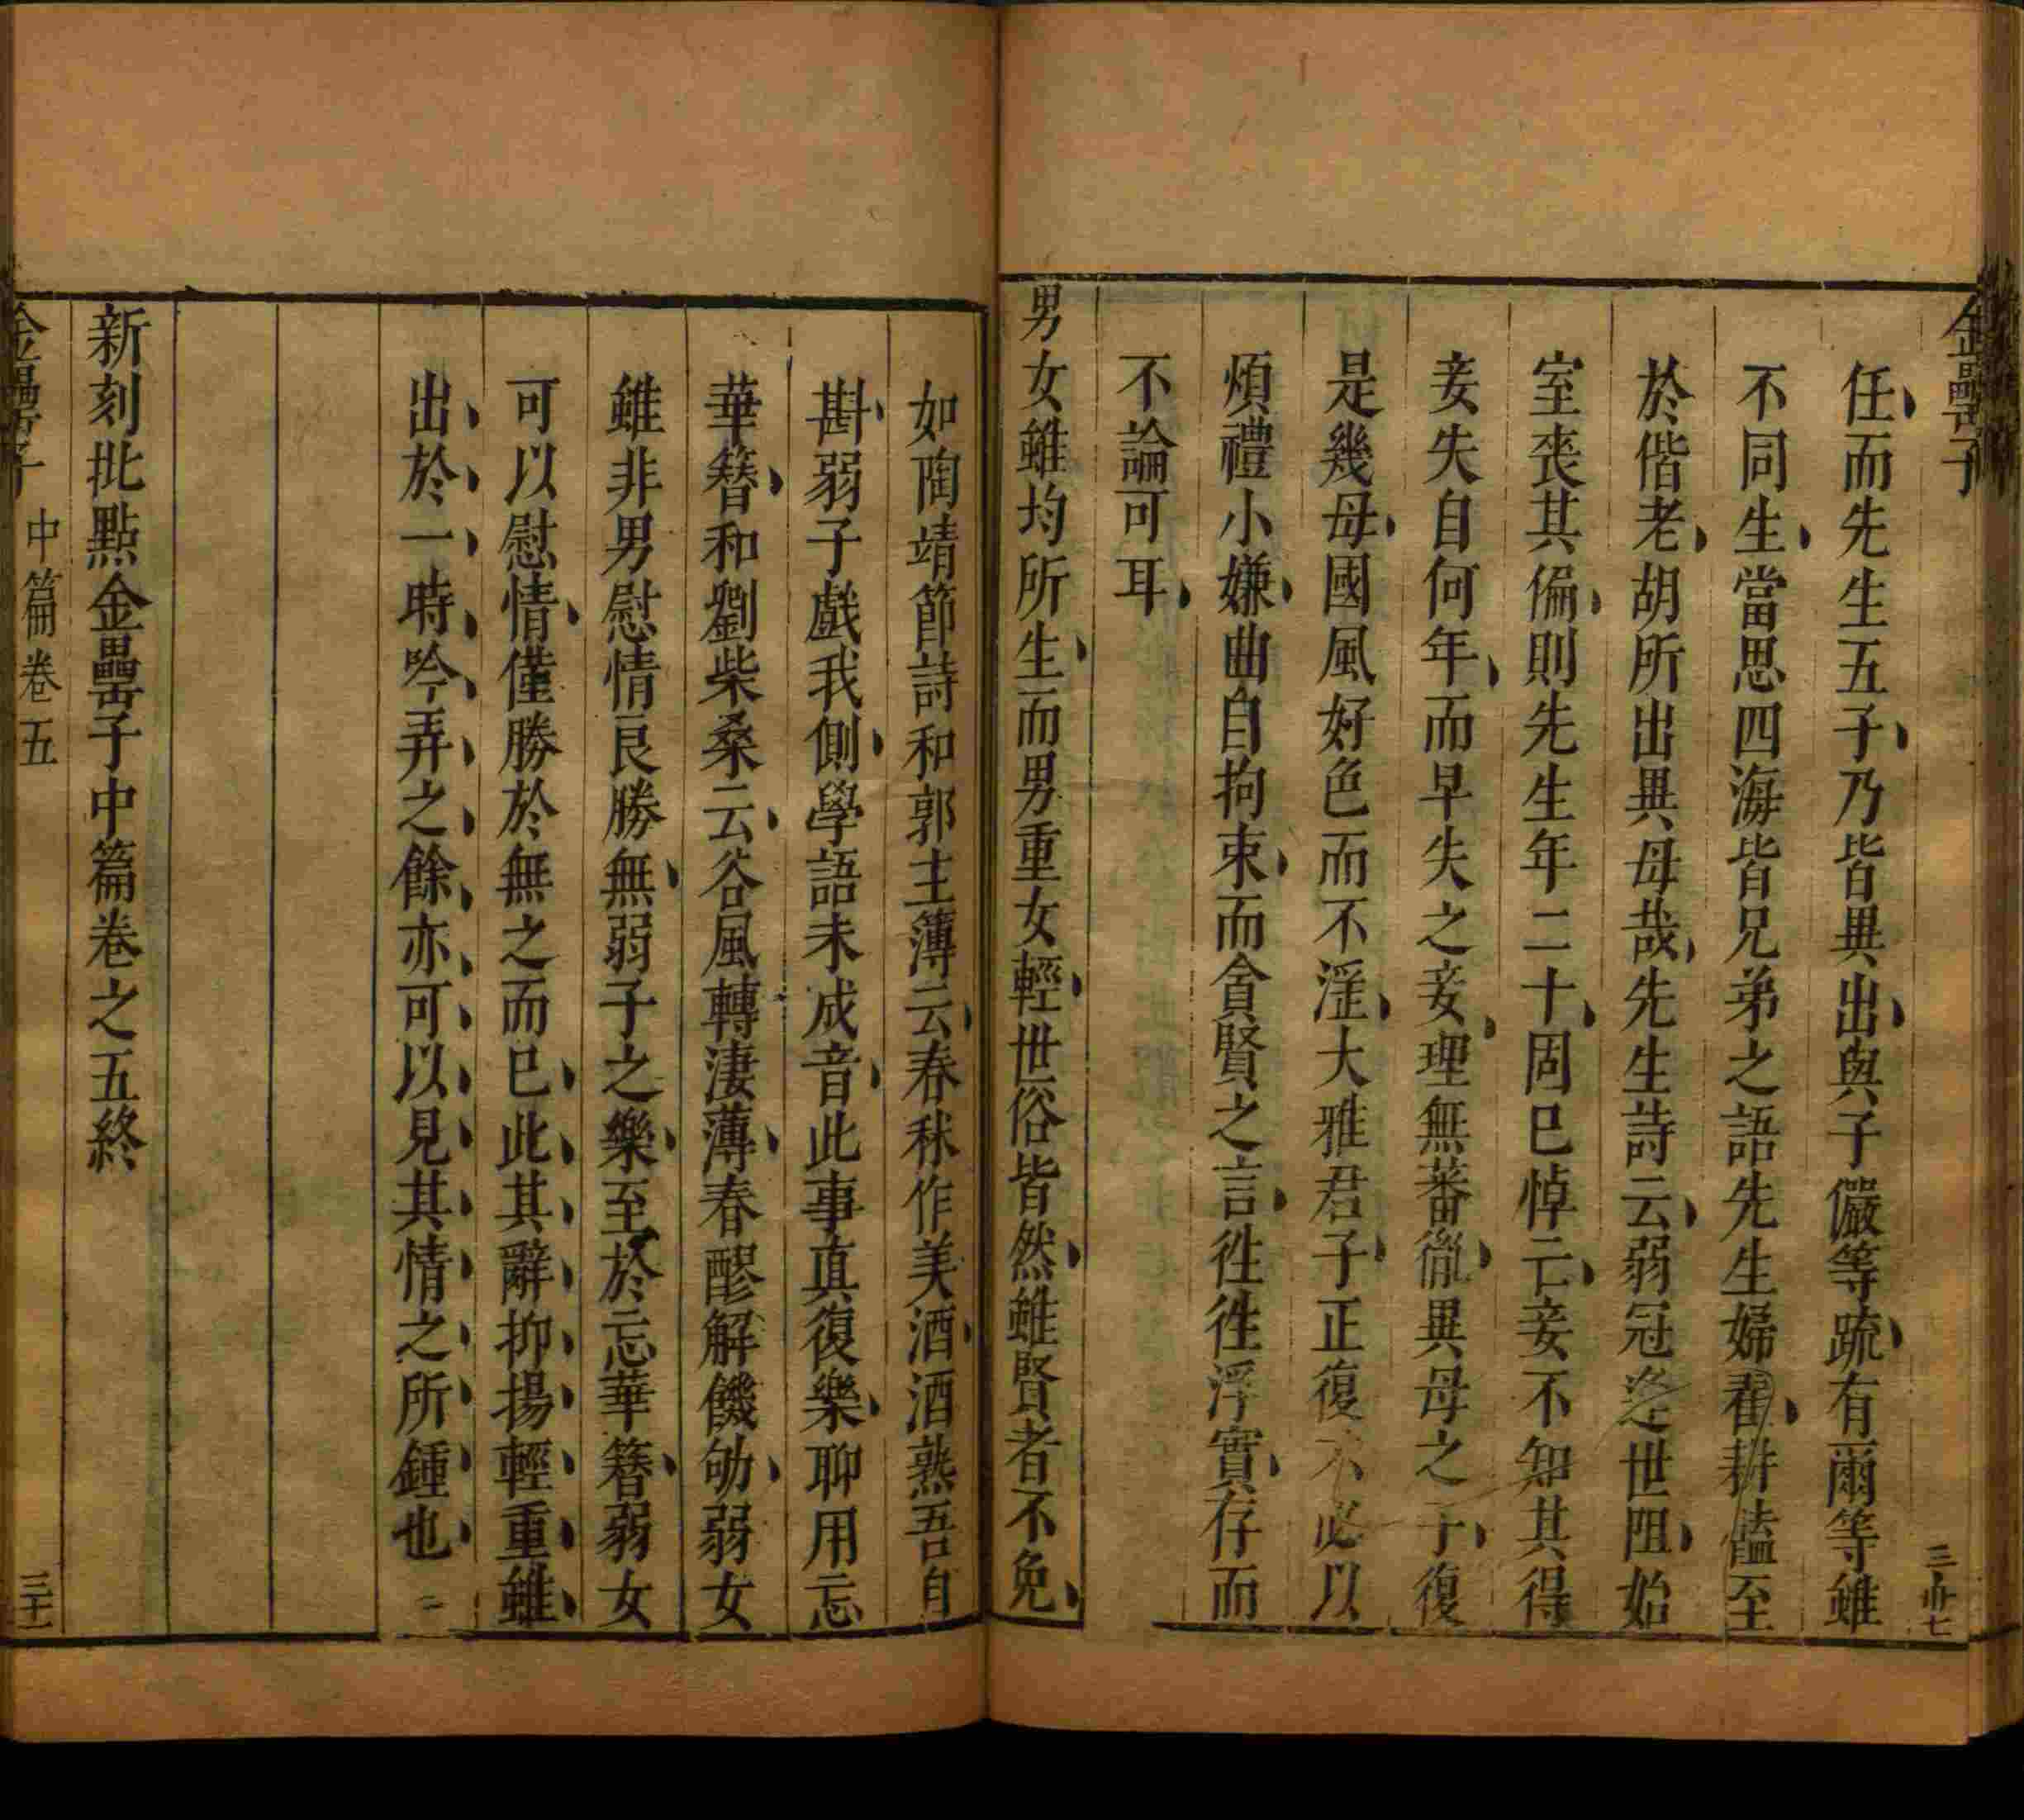 金罍子
三卅七
任而先生五子乃皆異出與子儼等疏有爾等雖
不同生當思四海皆兄弟之語先生婦翟耕饁至
於偕老胡所出異母哉先生詩云弱冠逢世阻始
室喪其偏則先生年二十固已悼亡妾不知其得
妾失自何年而早失之妾理無蕃徿異母之子復
是幾母國風好色而不淫大雅君子正復不必以
煩禮小嫌曲自拘束而貪賢之言徃徃浮實存而
不論可耳
男女雖均所生而男重女輕世俗皆然雖賢者不免
如陶靖節詩和郭主簿云春秫作美酒酒熟吾自
斟弱子戲我側學語未成音此事真復樂聊用忘
華簪和劉柴桑云谷風轉淒薄春醪解饑劬弱女
雖非男慰情良勝無弱子之樂至於忘華簪弱女
可以慰情僅勝於無之而已此其辭抑揚輕重雖
出於一時吟弄之餘亦可以見其情之所鍾也
新刻批點金罍子中篇卷之五終
金罍子 中篇卷五
三十一